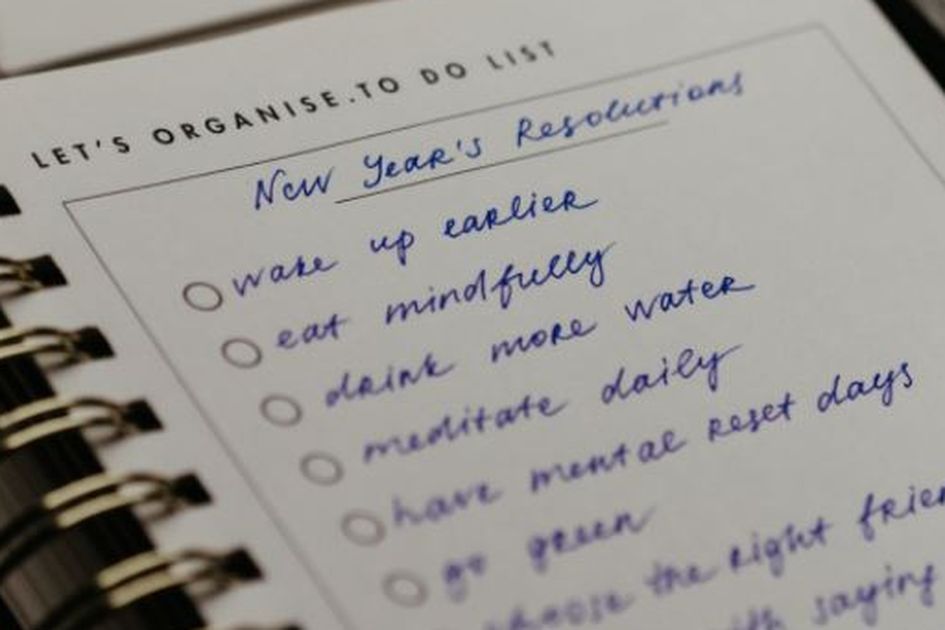 LET'S ORGANISE.TO DO LIST
New Year's Resolutions
wake up earlier
eat mindfully
drink more water
meditate daily
have mental reset days
go green
choose the right
saying